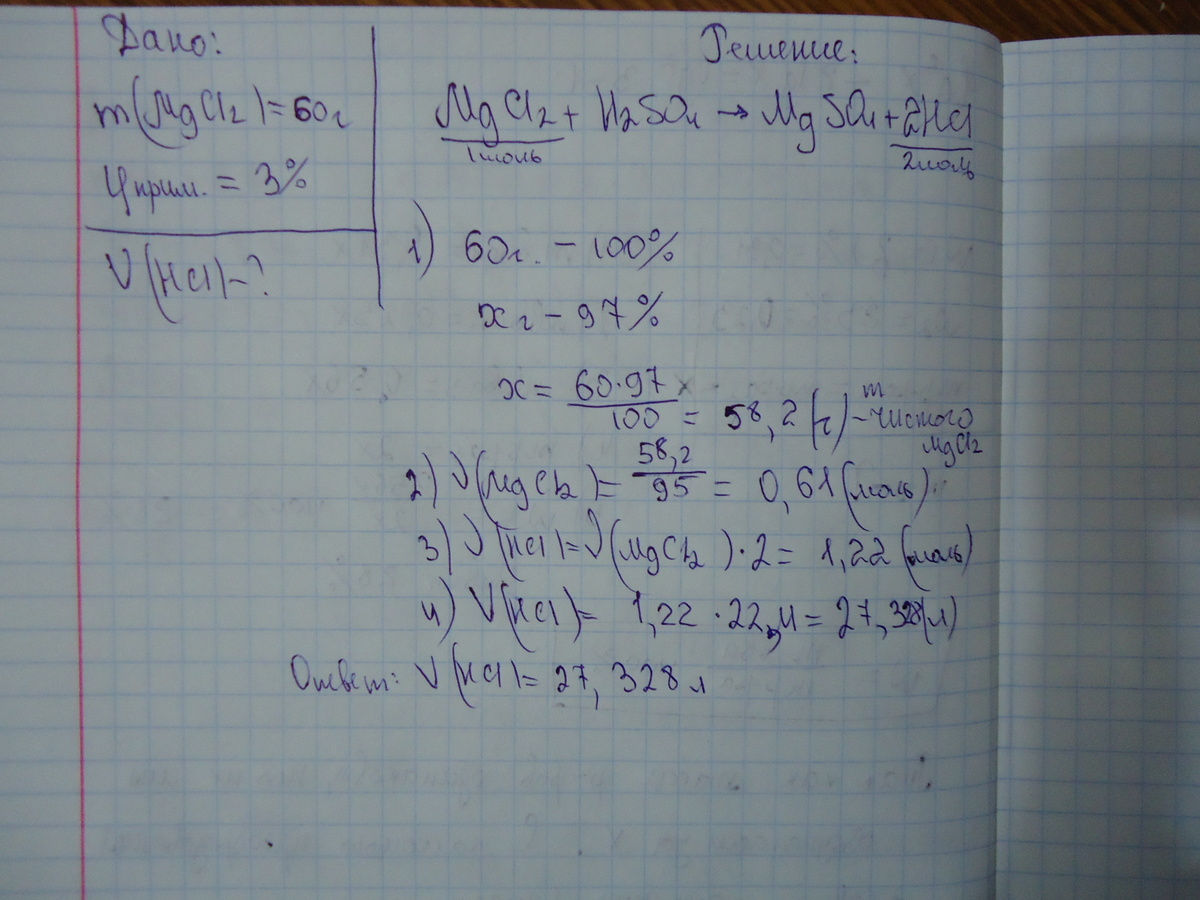 Дано:
m(MgCl2)=60г
ηприм. = 3%
V(HCl)-?
Решение:
MgCl2 + H2SO4 → MgSO4 + 2HCl
1моль 2моль
1) 60г. - 100%
xг - 97%
x = 60·97/100 = 58,2 (г) - m чистого MgCl2
2) ν(MgCl2) = 58,2/95 = 0,61 (моль)
3) ν(HCl)=ν(MgCl2)·2= 1,22 (моль)
4) V(HCl)= 1,22 ·22,4= 27,328(л)
Ответ: V(HCl)= 27,328 л